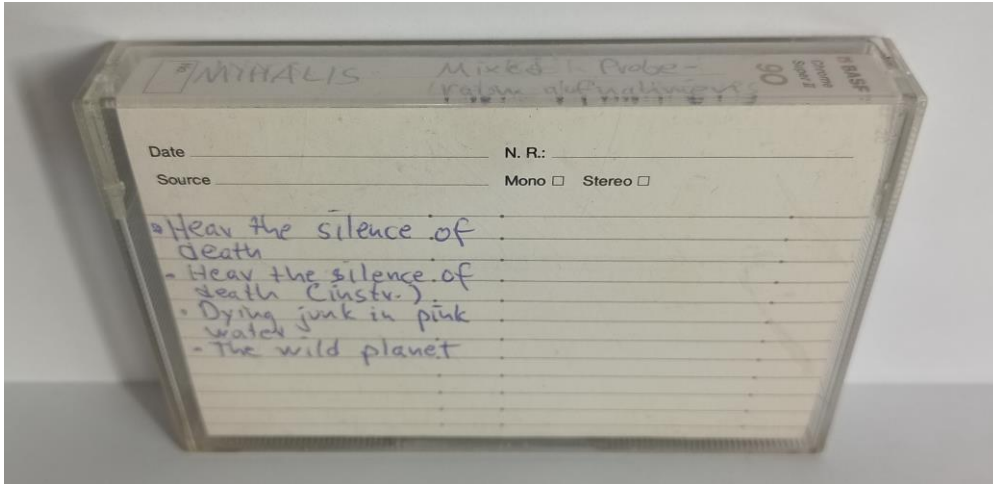 No. MYHALIS Mixed in Probe-
BASF
Chrome
Super II
90
Date N. R.:
Source Mono Stereo
Hear the silence of
death
- Hear the silence of
death (instr.)
Dying junk in pink
water
- The wild planet